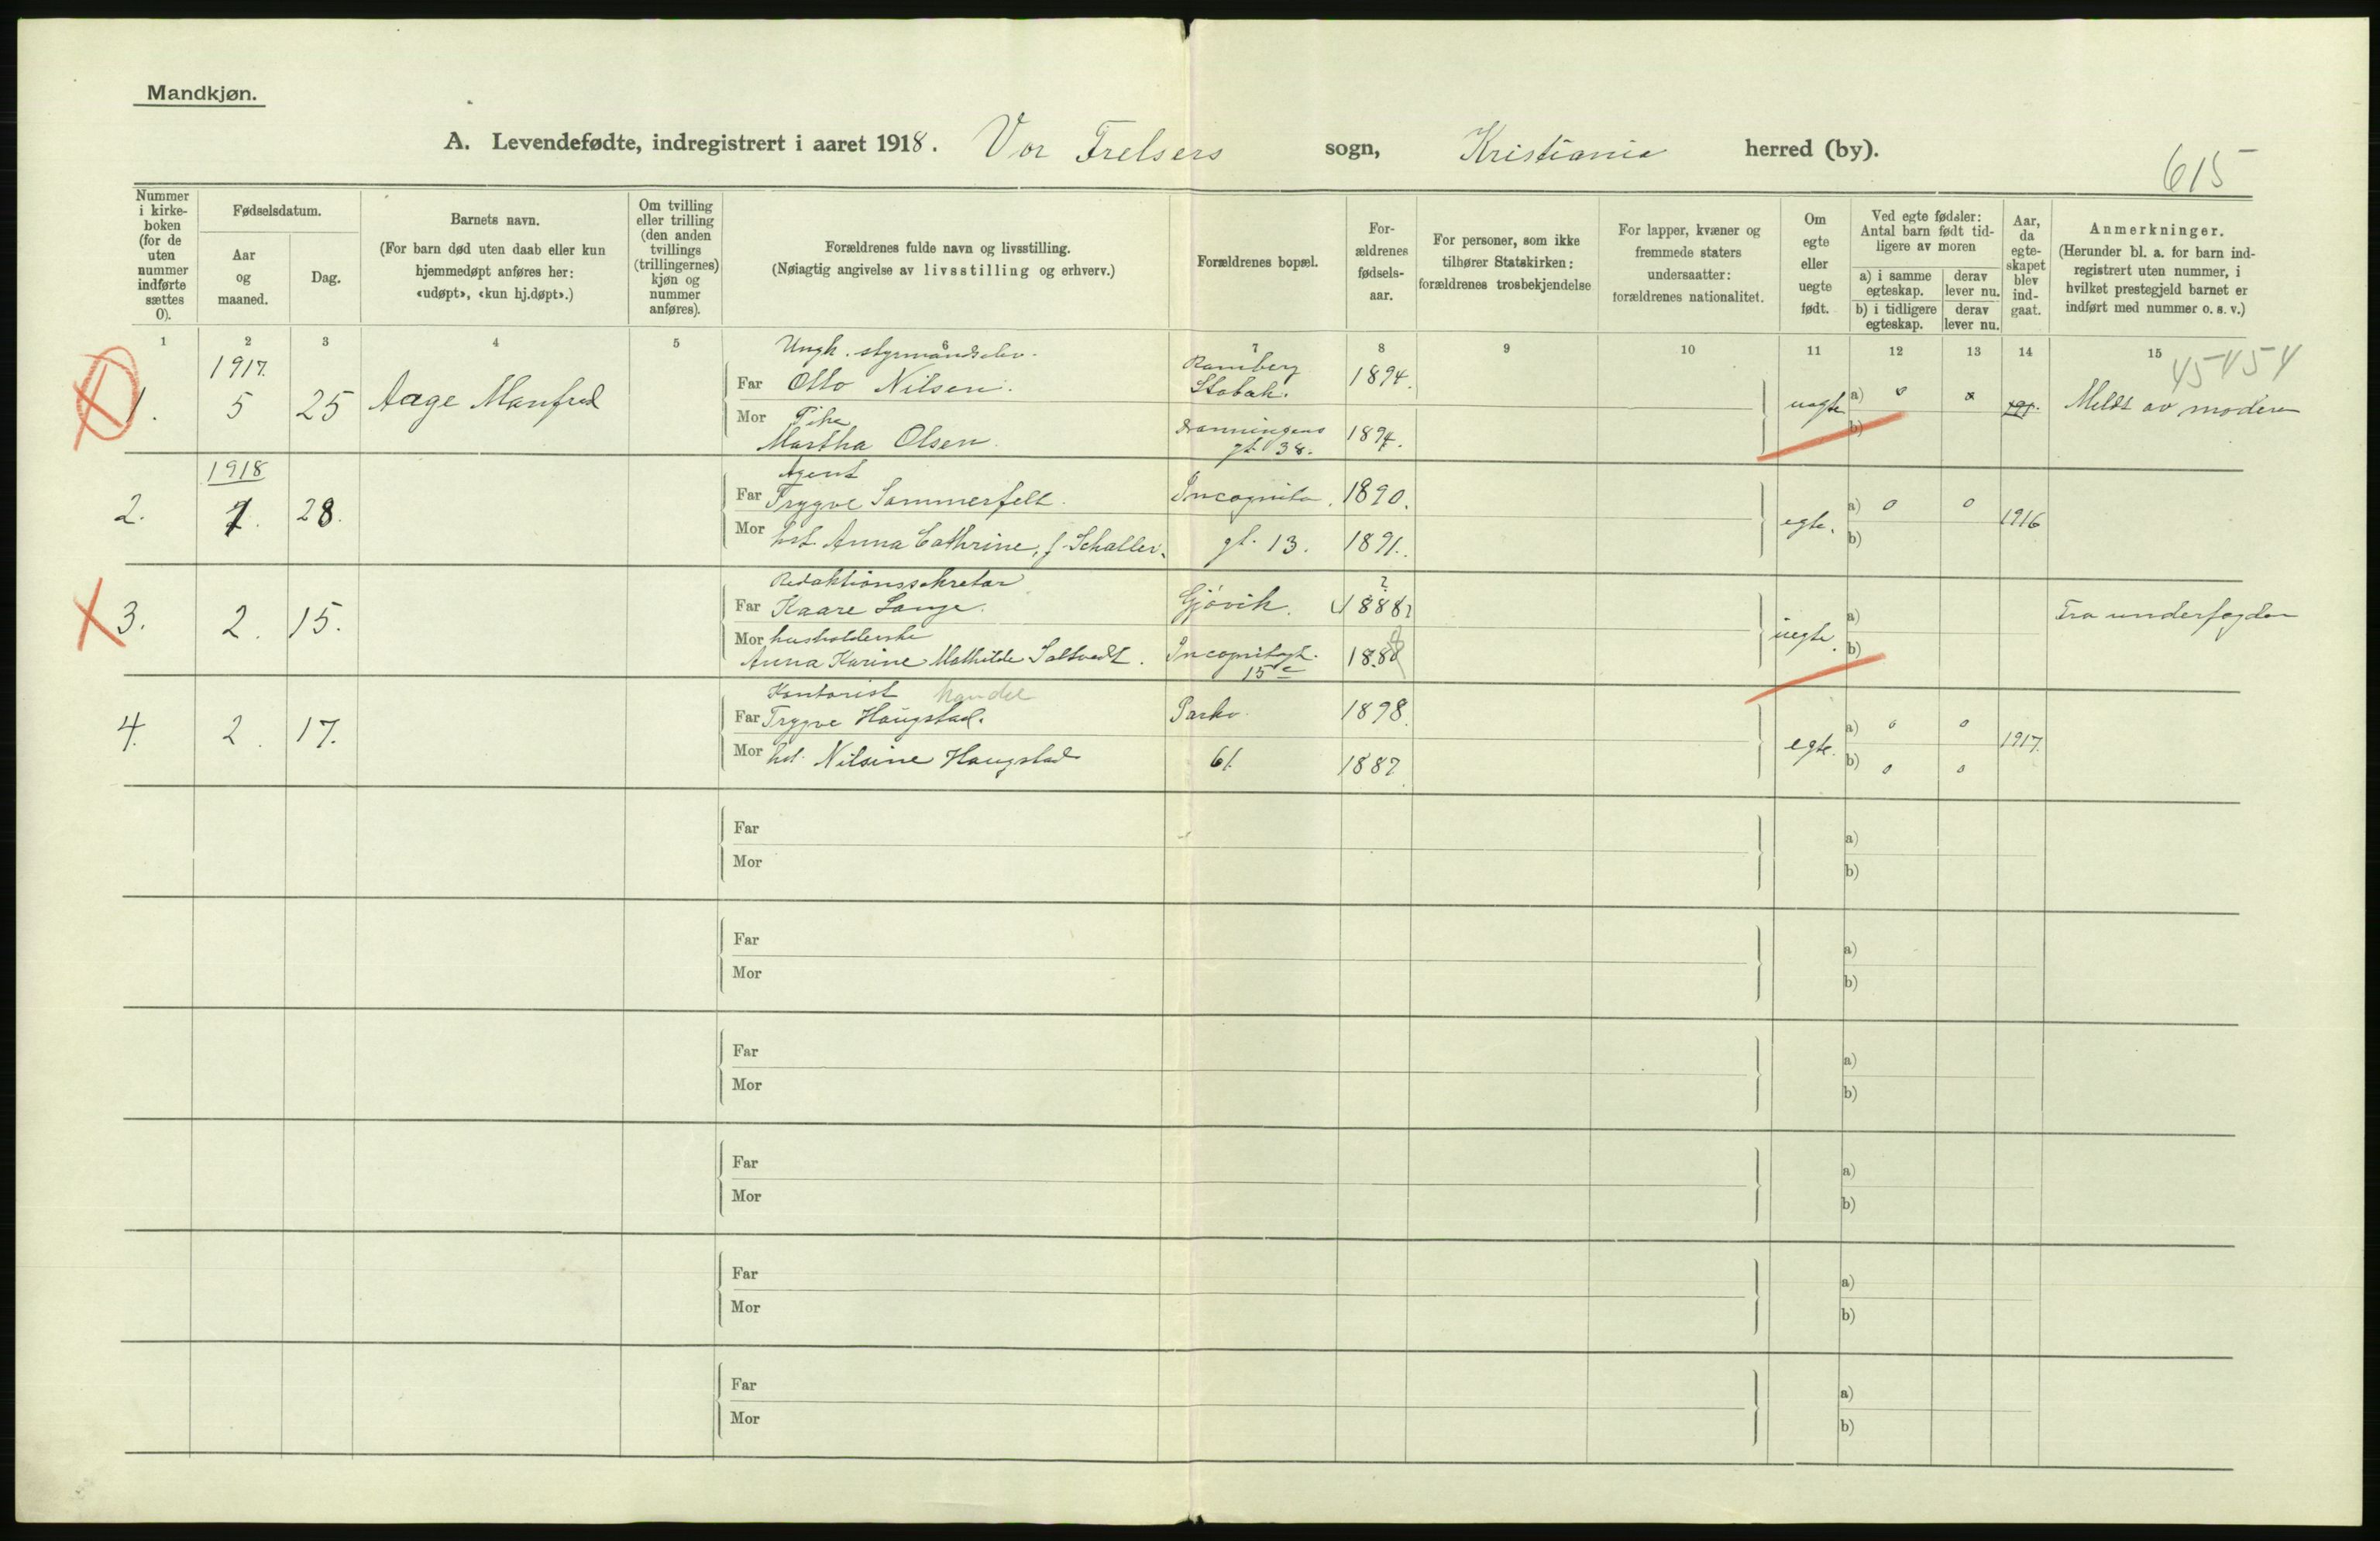 Mandkjøn.
A. Levendefødte, indregistrert i aaret 1918. Vor Frelsers sogn, Kristiania herred (by).
615
Nummer i kirkeboken (for de uten nummer indførte sættes 0).
Fødselsdatum.
Aar og maaned.
Dag.
Barnets navn.
(For barn død uten daab eller kun hjemmedøpt anføres her: «udøpt», «kun hj.døpt».)
Om tvilling eller trilling (den anden tvillings (trillingernes) kjøn og nummer anføres).
Forældrenes fulde navn og livsstilling.
(Nøiagtig angivelse av livsstilling og erhverv.)
Forældrenes bopæl.
Forældrenes fødselsaar.
For personer, som ikke tilhører Statskirken: forældrenes trosbekjendelse
For lapper, kvæner og fremmede staters undersaatter: forældrenes nationalitet.
Om egte eller uegte født.
Ved egte fødsler: Antal barn født tidligere av moren
a) i samme egteskap.
derav lever nu.
b) i tidligere egteskap.
derav lever nu.
Aar, da egteskapet blev indgaat.
Anmerkninger.
(Herunder bl. a. for barn indregistrert uten nummer, i hvilket prestegjeld barnet er indført med nummer o. s. v.)
1 2 3 4 5 6 7 8 9 10 11 12 13 14 15
45454
1917.
Ungk. styrmandselev.
1. 5 25 Aage Manfred Far Otto Nilsen. Ramberg Stabæk. 1894. uegte a) 0 191. Meldt av moderen
Mor Pike
Martha Olsen. Dronningens gt. 38. 1894. b)
1918
Agent
2. 1. 28. Far Trygve Sommerfelt. Incognito 1890. egte. a) 0 0 1916
Mor hst. Anna Cathrine, f. Schaller. gt. 13. 1891. b)
Redaktionssekretær
3. 2. 15. Far Kaare Lange. Gjøvik. (1888) ? uegte. a) Fra underfogden
Mor husholderske
Anna Karine Mathilde Saltvedt. Incognitogt. 15 c 188 b)
Kontorist handel
4. 2. 17. Far Trygve Haugstad. Parkv. 1898. egte. a) 0 0 1917.
Mor hst. Nilsine Haugstad 61. 1887. b) 0 0
Far a)
Mor b)
Far a)
Mor b)
Far a)
Mor b)
Far a)
Mor b)
Far a)
Mor b)
Far a)
Mor b)